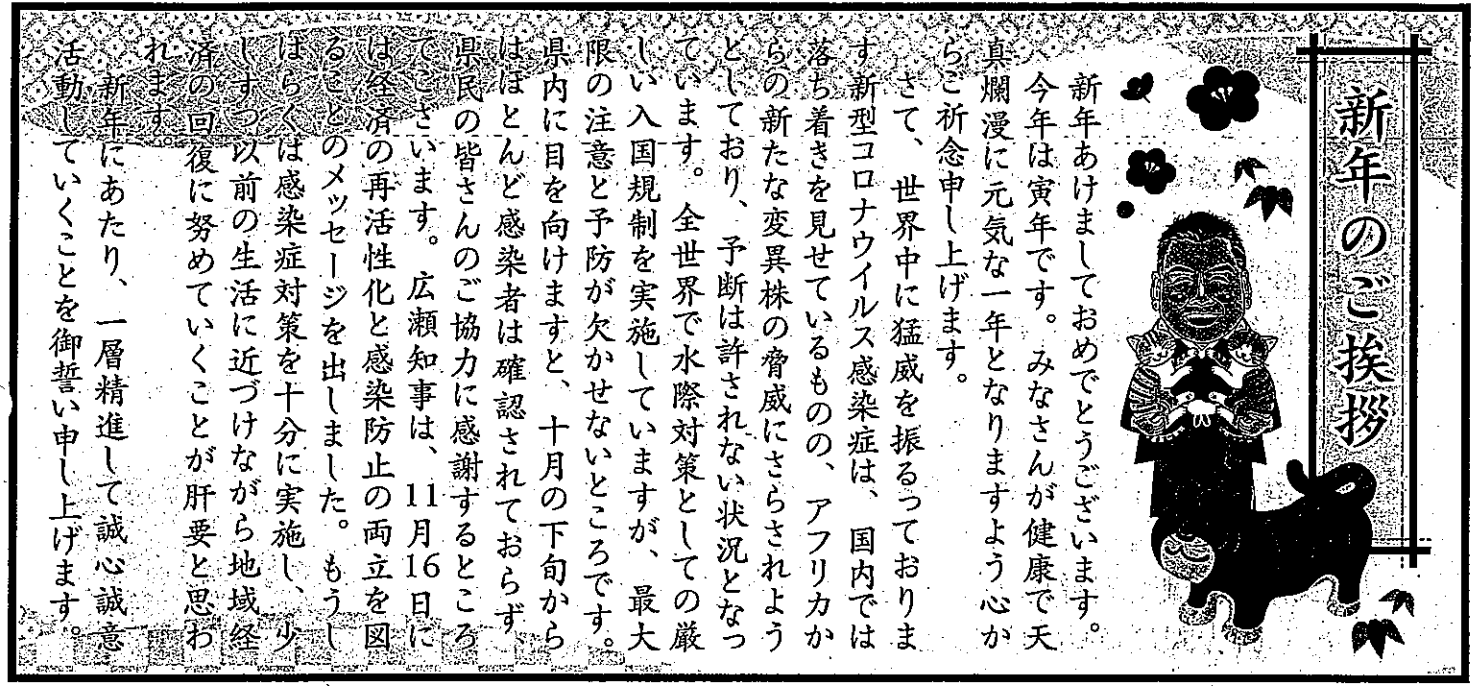 新年のご挨拶
新年あけましておめでとうございます。
今年は寅年です。みなさんが健康で天
真爛漫に元気な一年となりますよう心か
らご祈念申し上げます。
さて、世界中に猛威を振るっておりま
す新型コロナウイルス感染症は、国内では
落ち着きを見せているものの、アフリカか
らの新たな変異株の脅威にさらされよう
としており、予断は許されない状況となっ
ています。全世界で水際対策としての厳
しい入国規制を実施していますが、最大
限の注意と予防が欠かせないところです。
県内に目を向けますと、十月の下旬から
はほとんど感染者は確認されておらず
県民の皆さんのご協力に感謝するところ
でございます。広瀬知事は、11月16日に
は経済の再活性化と感染防止の両立を図
ることのメッセージを出しました。もうし
ばらくは感染症対策を十分に実施し、少
しずつ以前の生活に近づけながら地域経
済の回復に努めていくことが肝要と思わ
れます。
新年にあたり、一層精進して誠心誠意
活動していくことを御誓い申し上げます。